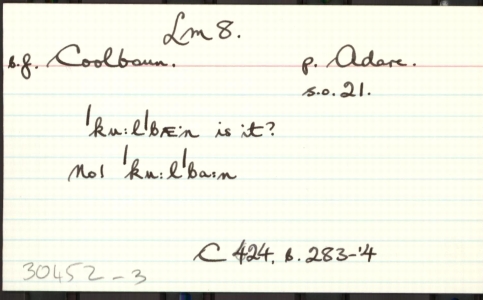 Lm 8.
s.f. Coolbaun. p. Adare.
s.o. 21.
ˈku:lˈbæ:n is it?
No! ˈku:lˈba:n
C 424, b. 283-'4
30452-3